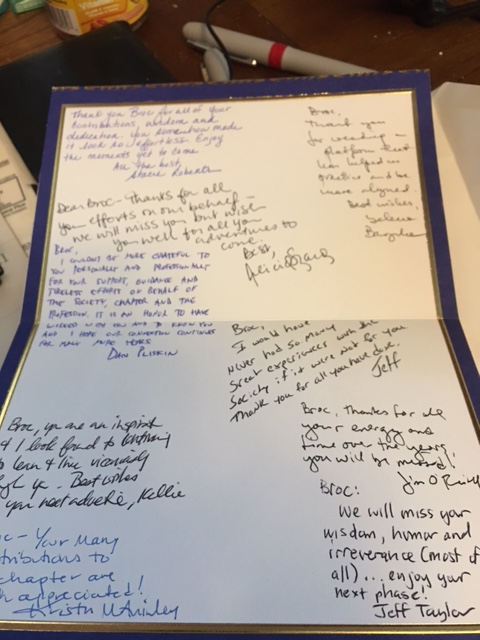 Thank you Broc for all of your
contributions, wisdom and
dedication. You somehow made
it look so effortless. Enjoy
the moments yet to come
All the best,
Stacie Roberts
Broc,
Thank you
for creating a
platform that
has helped us
practice and be
more aligned.
Best wishes,
Dear Broc - Thanks for all
your efforts on our behalf -
we will miss you but wish
you well for all your
adventures to
come.
Best,
Broc,
I couldn't be more grateful to
you personally and professionally
for your support, guidance and
tireless efforts on behalf of
the Society, chapter and the
profession. It is an honor to have
worked with you and to know you
and I hope our connection continues
for many more years
Dan Pliskin
Broc,
I would have
never had so many
great experiences with the
Society if it were not for you.
Thank you for all you have done.
Jeff
Broc, you are an inspirat
& I look forward to continuing
to learn & live vicariously
ugh you. Best wishes
you next adventure, Kellie
Broc, Thanks for all
your energy and
time over the years,
you will be missed!
Jim O
Broc:
We will miss your
wisdom, humor and
irreverance (most of
all)... enjoy your
next phase!
Jeff Taylor
oc - Your Many
tributions to
chapter are
h appreciated!
Kirstin